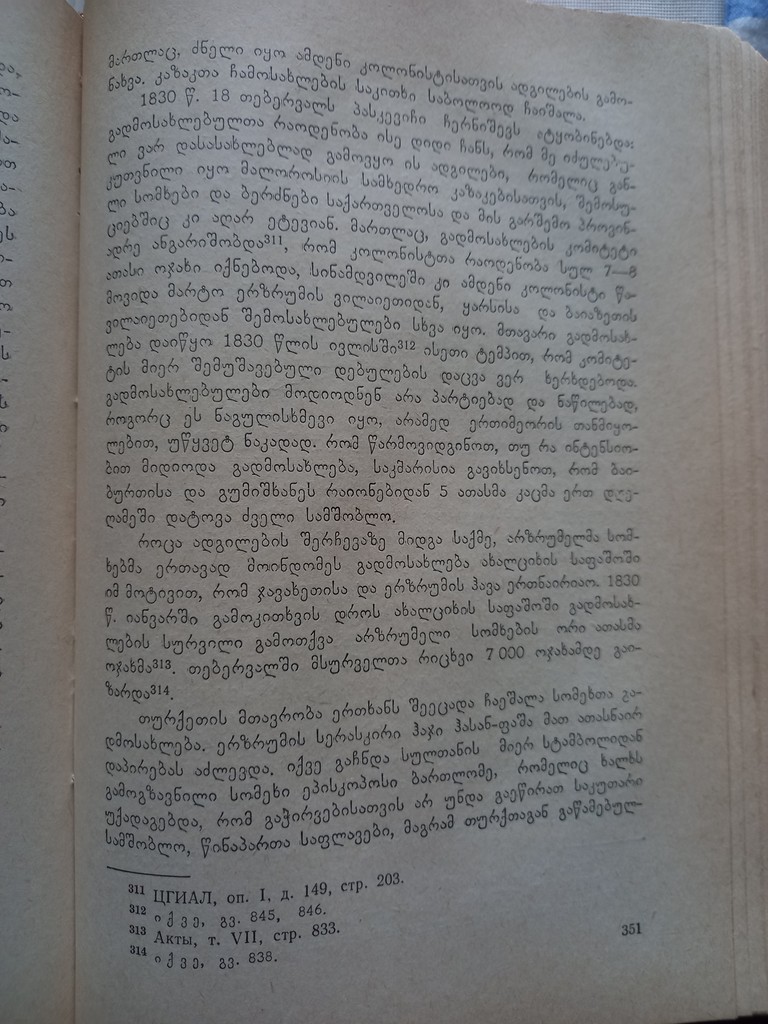 მართლაც, ძნელი იყო ამდენი კოლონისტისათვის ადგილების გამო-
ნახვა. კაზაკთა ჩამოსახლების საკითხი საბოლოოდ ჩაიშალა.
1830 წ. 18 თებერვალს პასკევიჩი ჩერნიშევს ატყობინებდა:
გადმოსახლებულთა რაოდენობა ისე დიდი ჩანს, რომ მე იძულებუ-
ლი ვარ დასასახლებლად გამოვყო ის ადგილები, რომელიც გან-
კუთვნილი იყო მალოროსიის სამხედრო კაზაკებისათვის, შემოსუ-
ლი სომხები და ბერძნები საქართველოსა და მის გარშემო პროვინ-
ციებშიც კი აღარ ეტევიან. მართლაც, გადმოსახლების კომიტეტი
ადრე ანგარიშობდა³¹¹, რომ კოლონისტთა რაოდენობა სულ 7—8
ათასი ოჯახი იქნებოდა, სინამდვილეში კი ამდენი კოლონისტი წა-
მოვიდა მარტო ერზრუმის ვილაიეთიდან, ყარსისა და ბაიაზეთის
ვილაიეთებიდან შემოსახლებულები სხვა იყო. მთავარი გადმოსახ-
ლება დაიწყო 1830 წლის ივლისში³¹² ისეთი ტემპით, რომ კომიტე-
ტის მიერ შემუშავებული დებულების დაცვა ვერ ხერხდებოდა.
გადმოსახლებულები მოდიოდნენ არა პარტიებად და ნაწილებად,
როგორც ეს ნაგულისხმევი იყო, არამედ ერთიმეორის თანმიყო-
ლებით, უწყვეტ ნაკადად. რომ წარმოვიდგინოთ, თუ რა ინტენსიო-
ბით მიდიოდა გადმოსახლება, საკმარისია გავიხსენოთ, რომ ბაი-
ბურთისა და გუმიშხანეს რაიონებიდან 5 ათასმა კაცმა ერთ დღე-
ღამეში დატოვა ძველი სამშობლო.
როცა ადგილების შერჩევაზე მიდგა საქმე, არზრუმელმა სომ-
ხებმა ერთავად მოინდომეს გადმოსახლება ახალციხის საფაშოში
იმ მოტივით, რომ ჯავახეთისა და ერზრუმის ჰავა ერთნაირიაო. 1830
წ. იანვარში გამოკითხვის დროს ახალციხის საფაშოში გადმოსახ-
ლების სურვილი გამოთქვა არზრუმელი სომხების ორი ათასმა
ოჯახმა³¹³. თებერვალში მსურველთა რიცხვი 7 000 ოჯახამდე გაი-
ზარდა³¹⁴.
თურქეთის მთავრობა ერთხანს შეეცადა ჩაეშალა სომეხთა გა-
დმოსახლება. ერზრუმის სერასკირი ჰაჯი ჰასან-ფაშა მათ ათასნაირ
დაპირებას აძლევდა. იქვე გაჩნდა სულთანის მიერ სტამბოლიდან
გამოგზავნილი სომეხი ეპისკოპოსი ბართლომე, რომელიც ხალხს
უქადაგებდა, რომ გაჭირვებისათვის არ უნდა გაეწირათ საკუთარი
სამშობლო, წინაპართა საფლავები, მაგრამ თურქთაგან გაწამებულ-
³¹¹ ЦГИАЛ, оп. I, д. 149, стр. 203.
³¹² იქვე, გვ. 845, 846.
³¹³ Акты, т. VII, стр. 833.
³¹⁴ იქვე, გვ. 838.
351